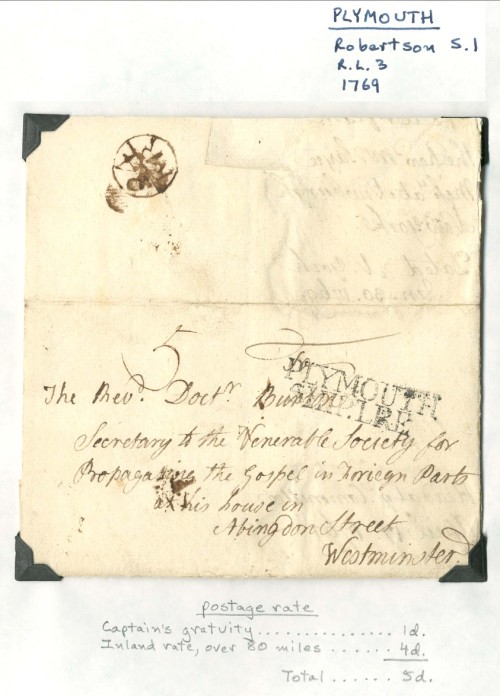 PLYMOUTH
Robertson S.1
R.L.3
1769
5
The Revd. Doctr. Burton
PLYMOUTH
SHIP LRE
Secretary to the Venerable Society for
Propagating the Gospel in Foriegn Parts
at his house in
Abingdon Street
Westminster
postage rate
Captain's gratuity .............. 1d.
Inland rate, over 80 miles ...... 4d.
Total ...... 5d.